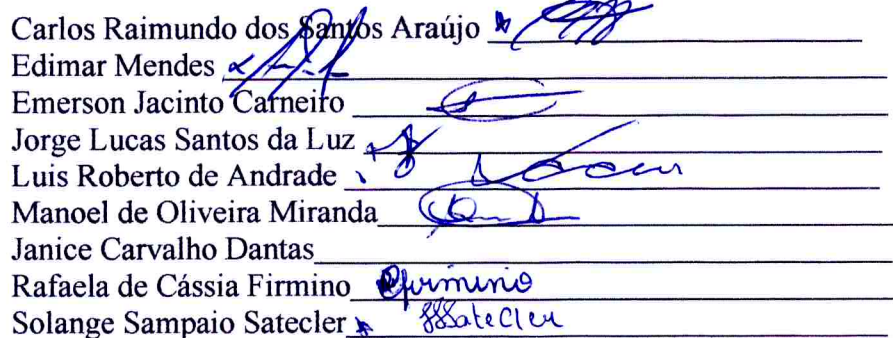 Carlos Raimundo dos Santos Araújo
Edimar Mendes
Emerson Jacinto Carneiro
Jorge Lucas Santos da Luz
Luis Roberto de Andrade
Manoel de Oliveira Miranda
Janice Carvalho Dantas
Rafaela de Cássia Firmino Rfirmino
Solange Sampaio Satecler SSSatecler